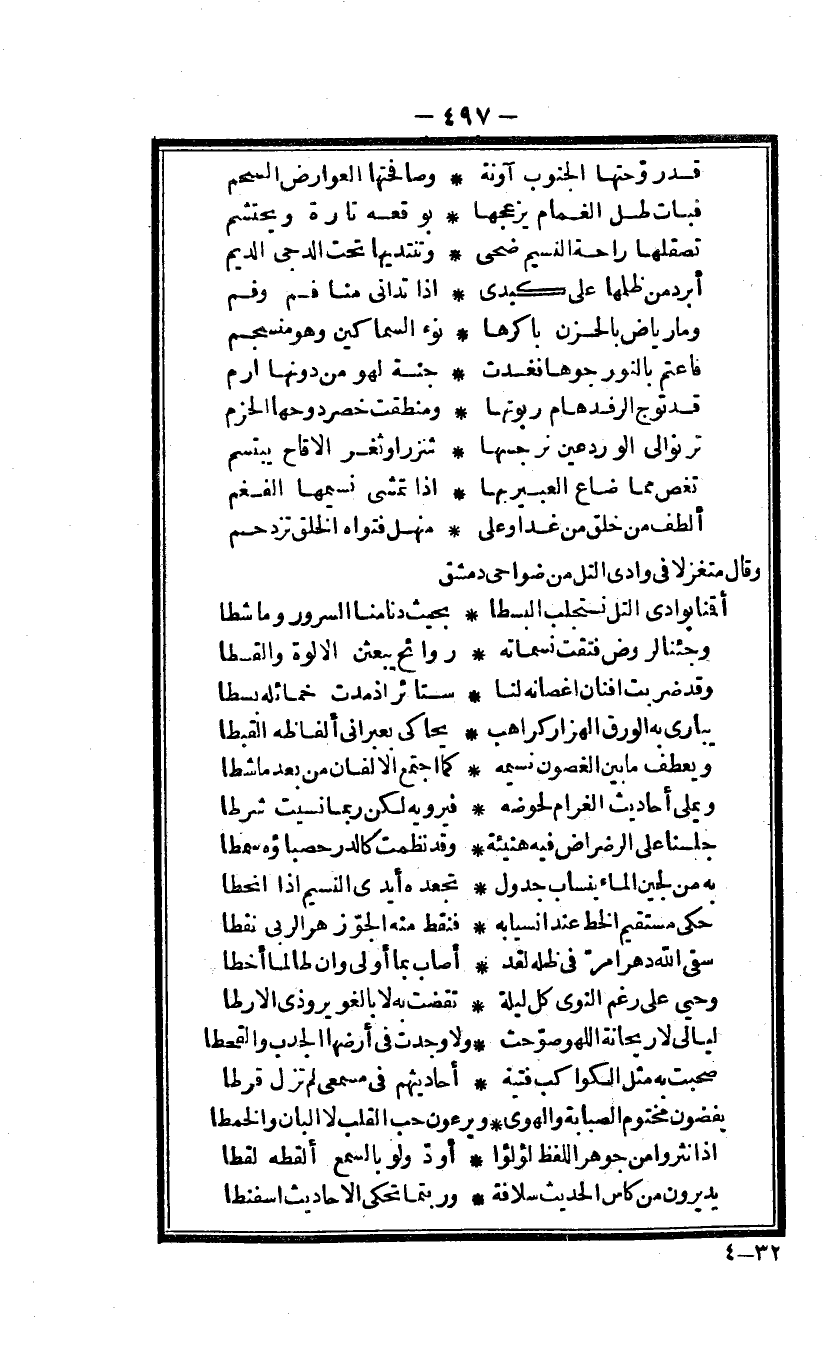 — ٤٩٧ —
قد روّحتها الجنوب آونة * وصافحتها العوارض السجم
فبات طل الغمام يزعجها * بوقعه تارة ويحتشم
تصقلها راحة النسيم ضحى * وتنتديها تحت الدجى الديم
أبرد من ظلها على كبدى * اذا تدانى منا فم وفم
وما رياض بالحزن باكرها * نوء السماكين وهو منسجم
فاعتم بالنور جوها فغدت * جنة لهو من دونها ارم
قد توج الرند هام ربوتها * ومنطقت خصر دوحها الحزم
ترنو الى الورد عين نرجسها * شزرا وثغر الاقاح يبتسم
تغص مما ضاع العبير بها * اذا تمشى نسيمها الفغم
ألطف من خلق من غدا وعلى * منهل فتواه الخلق تزدحم
وقال متغزلا فى وادى التل من ضواحى دمشق
أقنا بوادى التل نستجلب البسطا * بحيث دنا منا السرور وما شطا
وجئنا لروض فتقت نسماته * روائح يبعثن الالوة والقسطا
وقد ضربت افنان اغصانه لنا * ستائر اذ مدت خمائله بسطا
يبارى به الورق الهزار كراهب * يحاكى بعبرانى ألفاظه القبطا
ويعطف مابين الغصون نسيمه * كما اجتمع الالفان من بعد ما شطا
ويملى أحاديث الغرام لحوضه * فيرويه لكن ربما نسيت شرطا
جلسنا على الرضراض فيه هنيئة * وقد نظمت كالدر حصباؤه سمطا
به من لجين الماء ينساب جدول * تجعده أيدى النسيم اذا انحطا
حكى مستقيم الخط عند انسيابه * فنقط منه الجوّ زهر الربى نقطا
سقى الله دهرا مرّ فى ظله لقد * أصاب بما أولى وان طالما أخطا
وحيى على رغم النوى كل ليلة * تقضت به لا بالغوير وذى الارطا
ليالى لا ريحانة اللهو صوّحت * ولا وجدت فى أرضها الجدب والقحطا
صحبت به مثل الكواكب فتية * أحاديثهم فى مسمعى لم تزل قرطا
يفضون مختوم الصبابة والهوى * ويرعون حب القلب لا البان والخمطا
اذا نثروا من جوهر اللفظ لؤلؤا * أودّ ولو بالسمع ألقطه لقطا
يديرون من كاس الحديث سلافة * وربتما تحكى الاحاديث اسفنطا
٣٢—٤